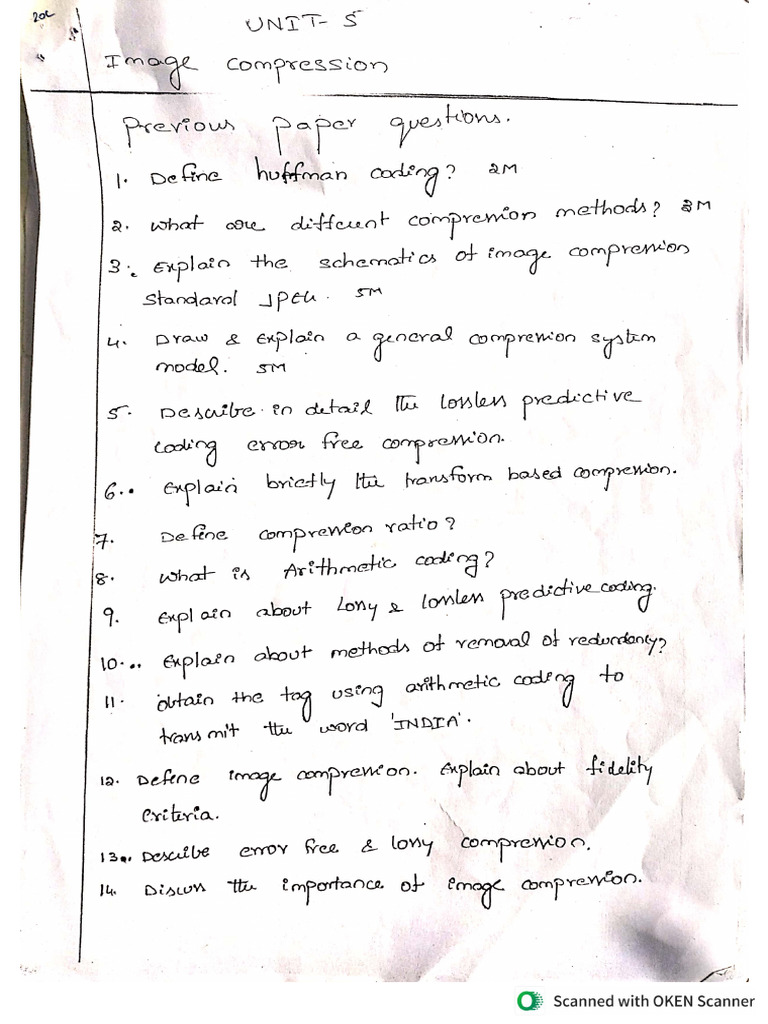 UNIT- 5
Image compression
Previous paper questions.
1. Define huffman coding? 2M
2. What are different compression methods? 3M
3. Explain the schematics of image compression
standard JPEG. 5M
4. Draw & Explain a general compression system
model. 5M
5. Describe in detail the lossless predictive
coding error free compression.
6. Explain briefly the transform based compression.
7. Define compression ratio?
8. What is Arithmetic coding?
9. Explain about Lossy & lossless predictive coding.
10. Explain about methods of removal of redundancy?
11. obtain the tag using arithmetic coding to
transmit the word 'INDIA'.
12. Define image compression. Explain about fidelity
criteria.
13. Describe error free & lossy compression.
14. Discuss the importance of image compression.
Scanned with OKEN Scanner